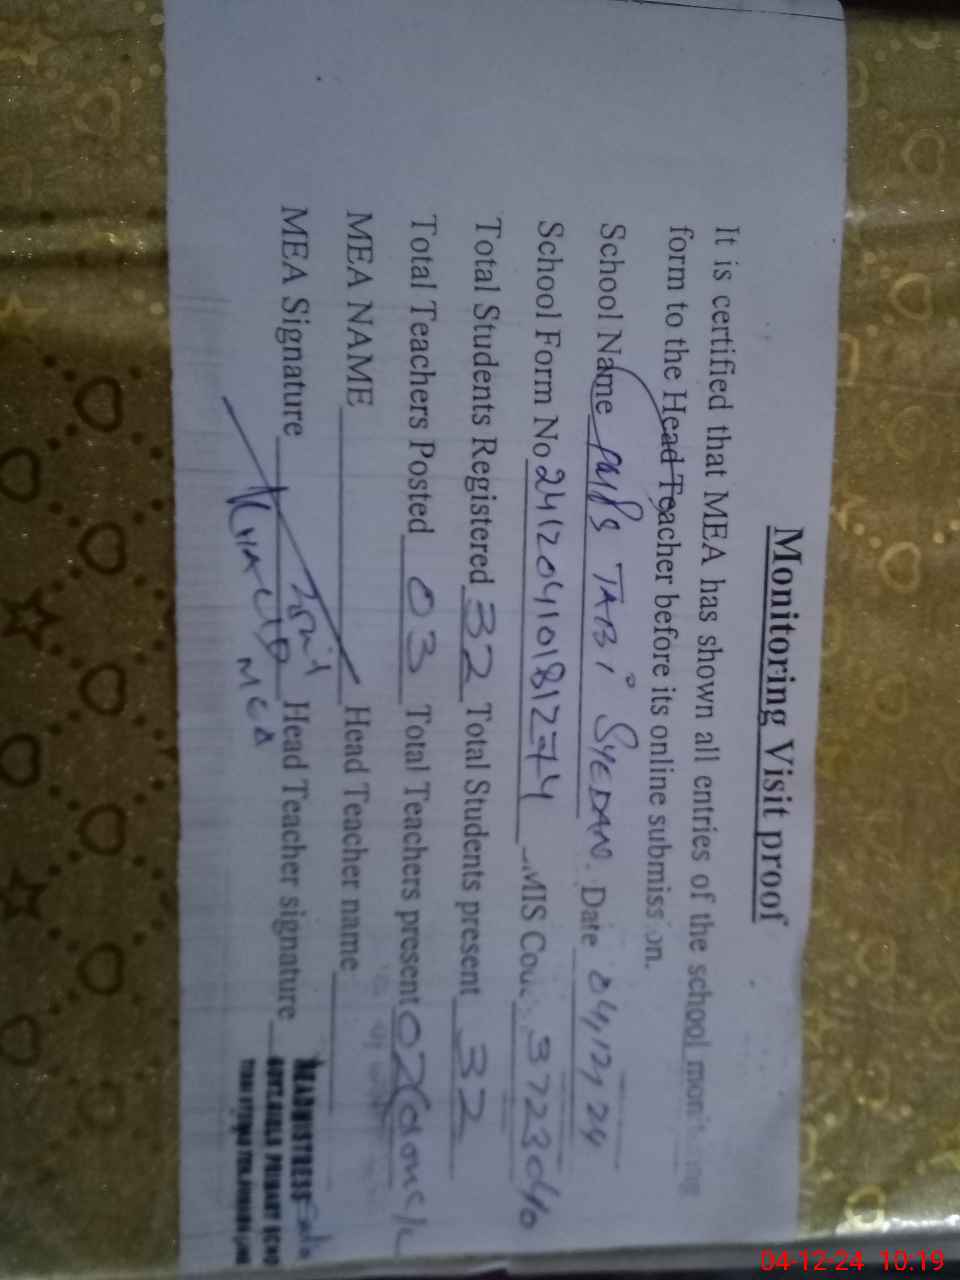 Monitoring Visit proof
It is certified that MEA has shown all entries of the school monitoring
form to the Head Teacher before its online submission.
School Name GGPS TABI SYEDAN. Date 04,12,24
School Form No 24120410181274 EMIS Code 37230410
Total Students Registered 32 Total Students present 32
Total Teachers Posted 03 Total Teachers present 02
MEA NAME Head Teacher name
MEA Signature Head Teacher signature
MEA
HEADMISTRESS
GOVT. GIRLS PRIMARY SCHO
04-12-24 10:19